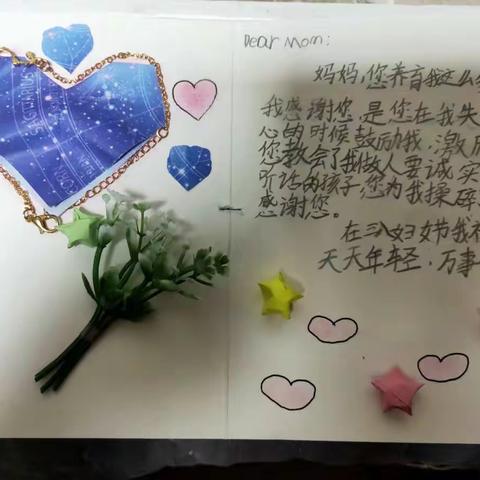 Dear Mom:
妈妈,您养育我这么
我感谢您,是您在我失
心的时候鼓励我,激
您教会了我做人要诚实
听话的孩子,您为我操碎
感谢您。
在三八妇女节我
天天年轻,万事
SAGITTARIUS